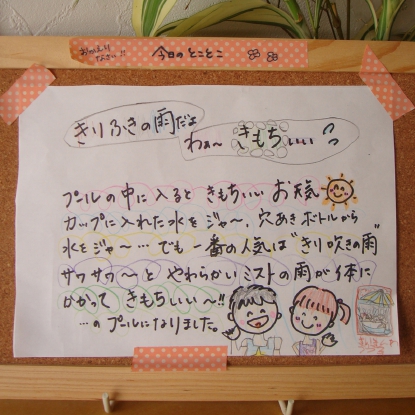 おかえりなさい!!
今日のとことこ
きりふきの雨だよ
わぁ〜 きもちぃぃ
プールの中に入ると きもちぃぃ お天気
カップに入れた水をジャ〜、穴あきボトルから
水をジャ〜… でも一番の人気は"きり吹きの雨"
サワサワ〜と やわらかいミストの雨が体に
かかって きもちぃぃ〜!!
…の プールになりました。